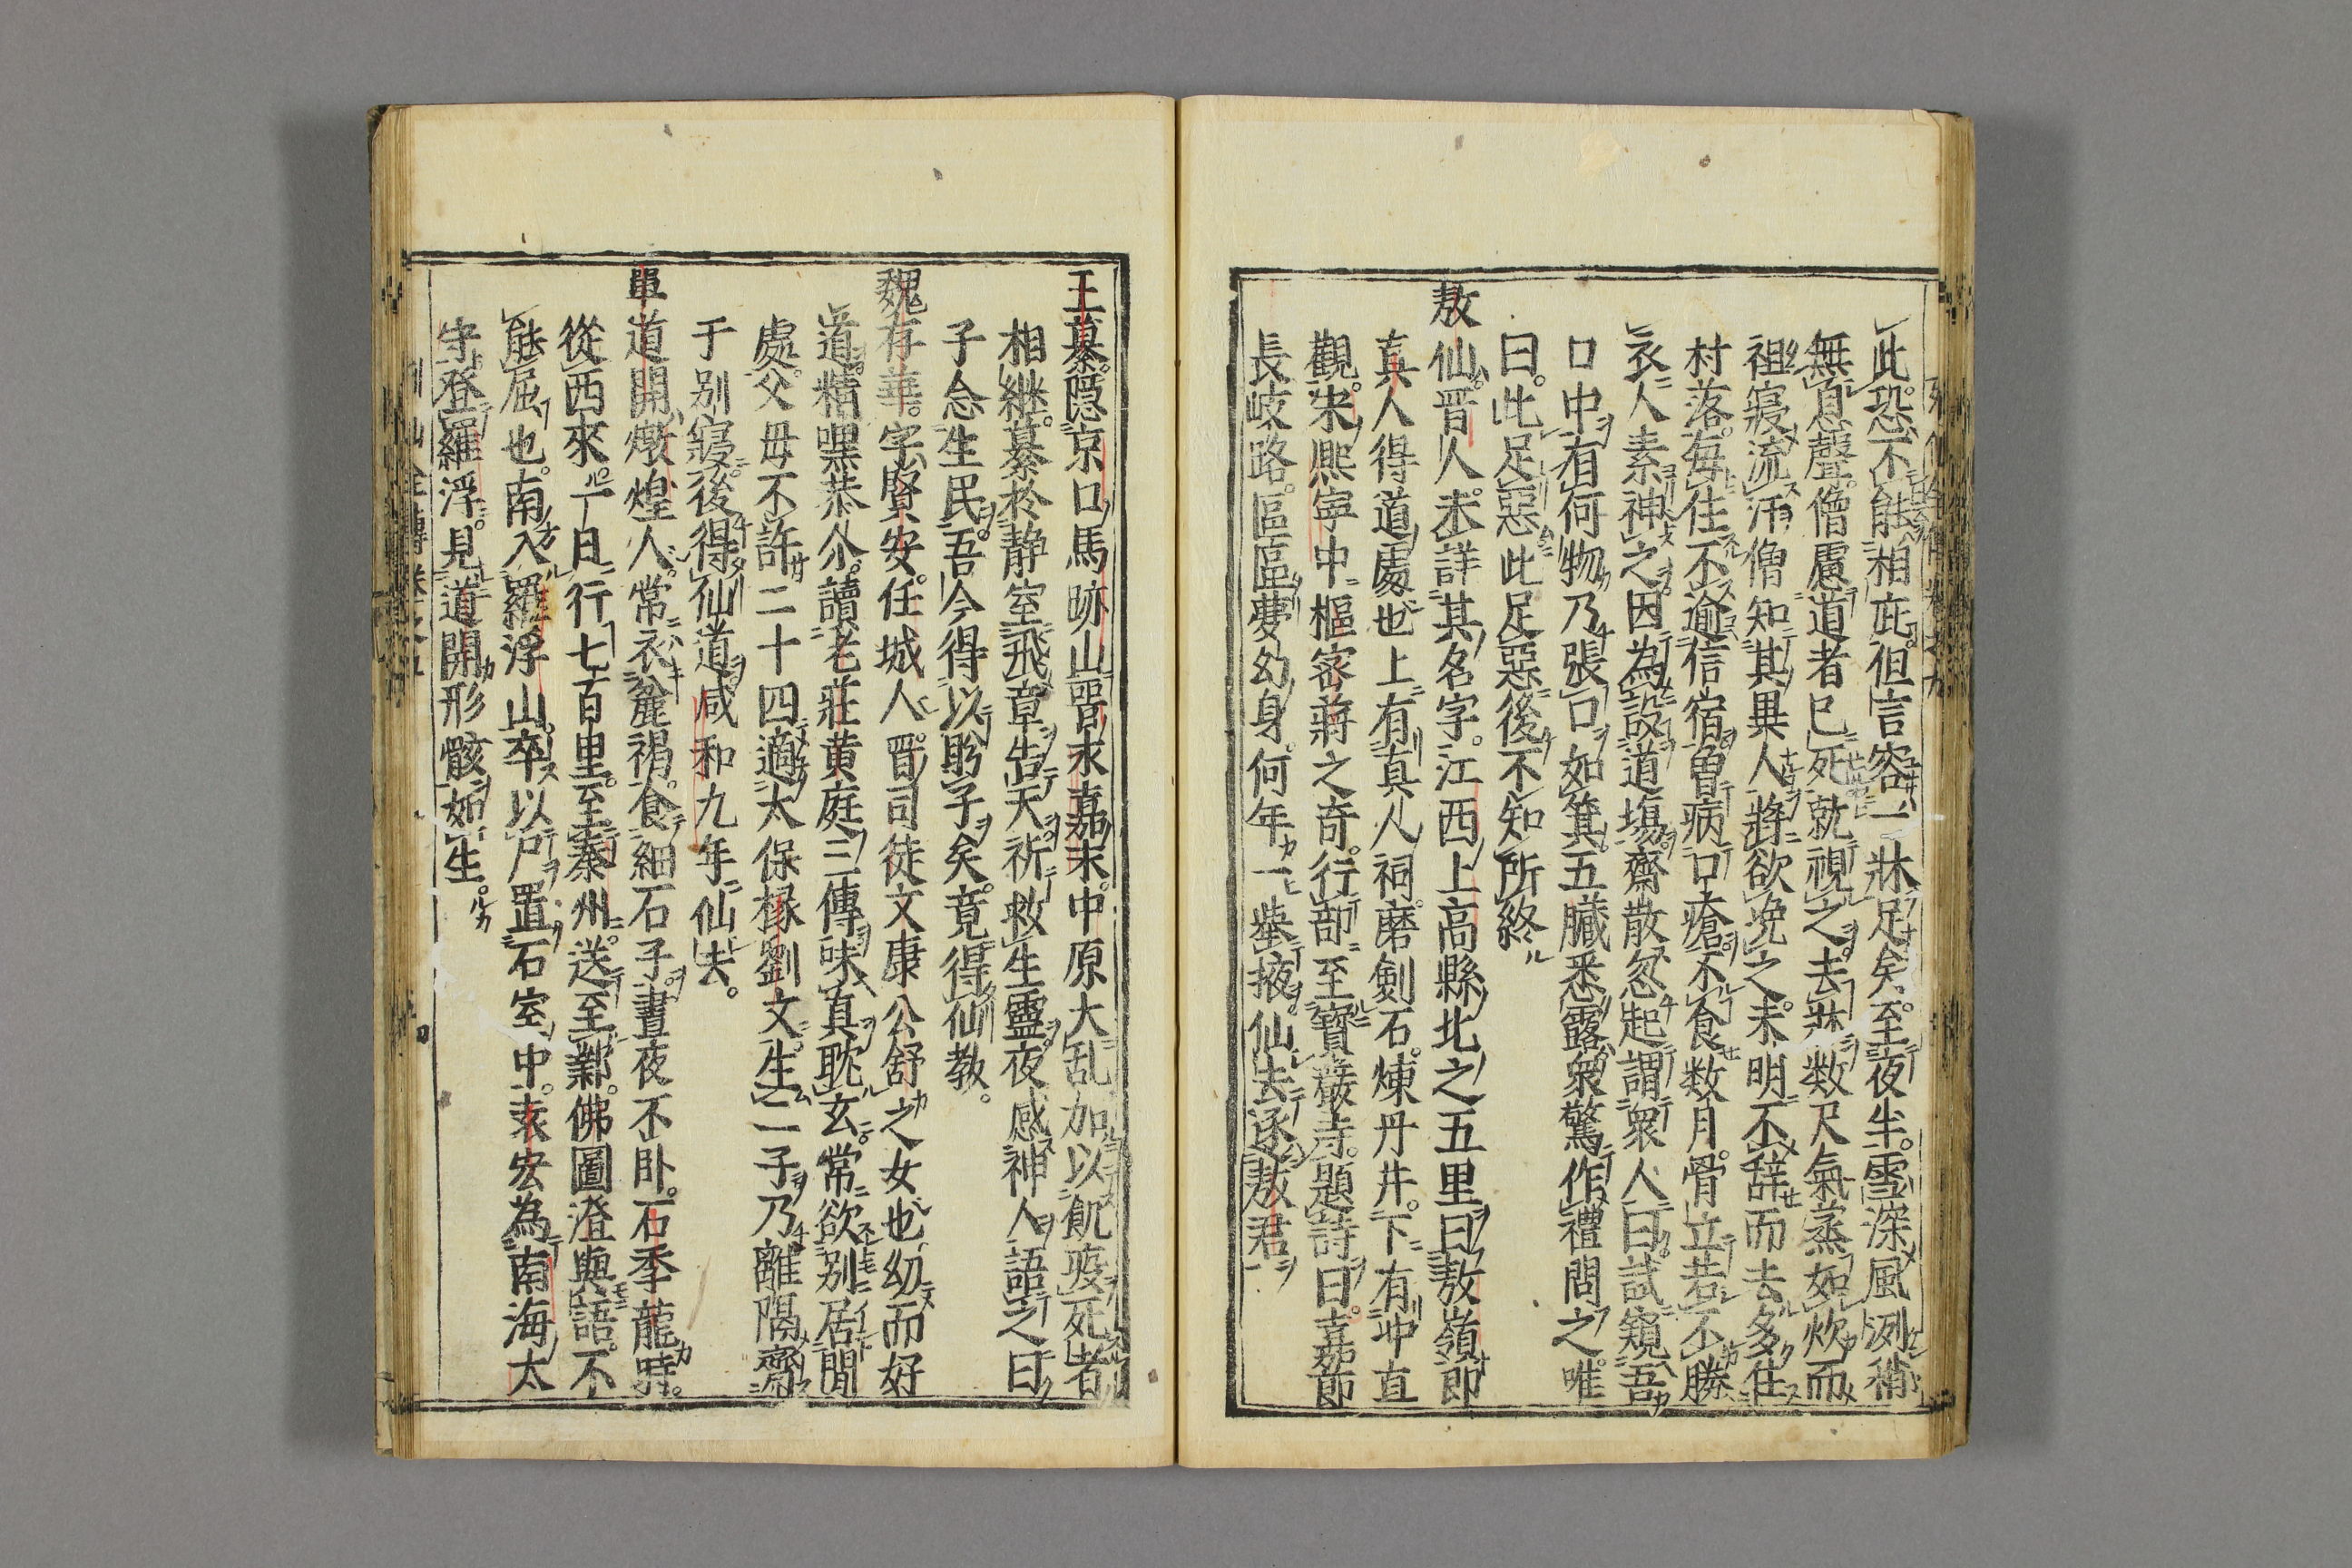 此恐不能相庇但言容一牀足矣至夜坐雪深風洌稍
無息聲僧慮道者已死就視之去牀数尺氣蒸如炊而
袒寢流汗僧知其異人將欲晩之未明不辭而去多住
村落毎住不逾信宿曽病口瘡不食数月骨立若不勝
衣人素神之因為設道塲齋散忽起謂衆人曰試窺吾
口中有何物乃張口如箕五臟悉露衆驚作禮問之唯
曰此足惡此足惡後不知所終
敖仙晋人未詳其名字江西上高縣北之五里曰敖嶺即
真人得道處也上有真人祠磨剣石煉丹井下有冲直
觀宋熈寧中樞宻蔣之奇行部至寶巖寺題詩曰嘉節
長岐路區區夢幻身何年一掌掖仙去逐敖君
王纂隠京口馬跡山晋永嘉末中原大乱加以飢疫死者
相継纂於静室飛章告天祈救生靈夜感神人語之曰
子念生民吾今得以盻子矣竟得仙教
魏存華字賢安任城人晋司徒文康公舒之女也幼而好
道精嘿恭介讀老莊黄庭三傳味真耽玄常欲别居閒
處父毋不許二十四適太保掾劉文生二子乃離隔齋
于别寢後得仙道咸和九年仙去
單道開燉煌人常衣麄褐食細石子晝夜不卧石季龍時
從西來一日行七百里至秦州送至鄴佛圖澄與語不
能屈也南入羅浮山卒以尸置石室中袁宏為南海太
守登羅浮見道開形骸如生